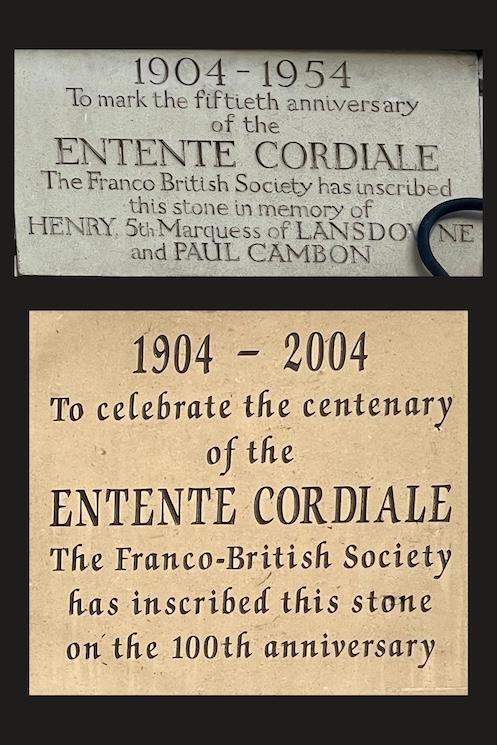 1904-1954
To mark the fiftieth anniversary
of the
ENTENTE CORDIALE
The Franco British Society has inscribed
this stone in memory of
HENRY, 5th Marquess of LANSDOWNE
and PAUL CAMBON
1904 - 2004
To celebrate the centenary
of the
ENTENTE CORDIALE
The Franco-British Society
has inscribed this stone
on the 100th anniversary